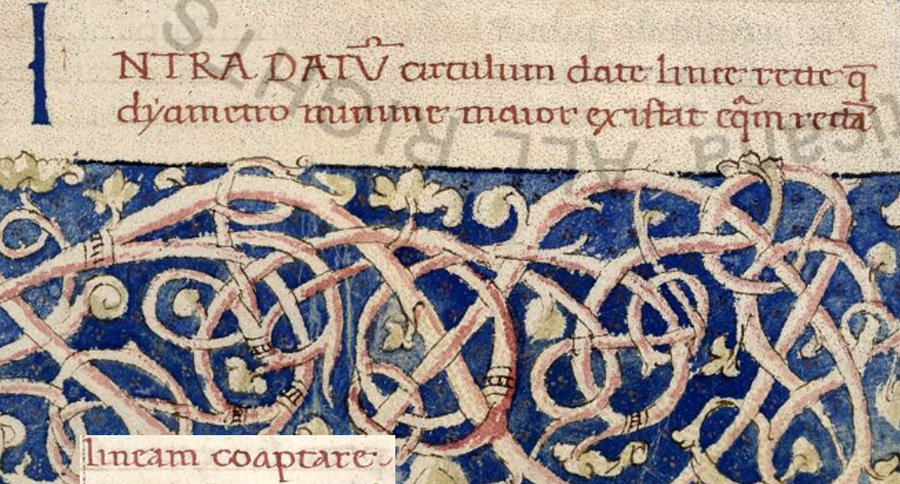 INTRA DATŪ circulum date linee recte q̄
dyametro minime maior existat eq̄m rectā
lineam coaptare